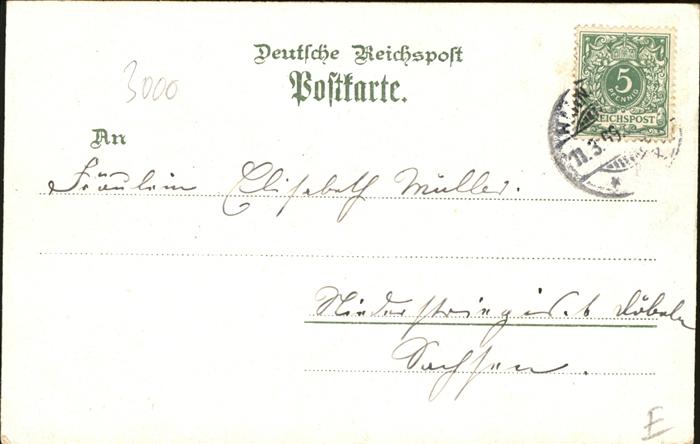 Deutsche Reichspost
Postkarte.
3000
5
PFENNIG
REICHSPOST
11.3.99.
An
Fräulein Elisabeth Müller.
Niederstriegis. b Döbeln
Sachsen.
E